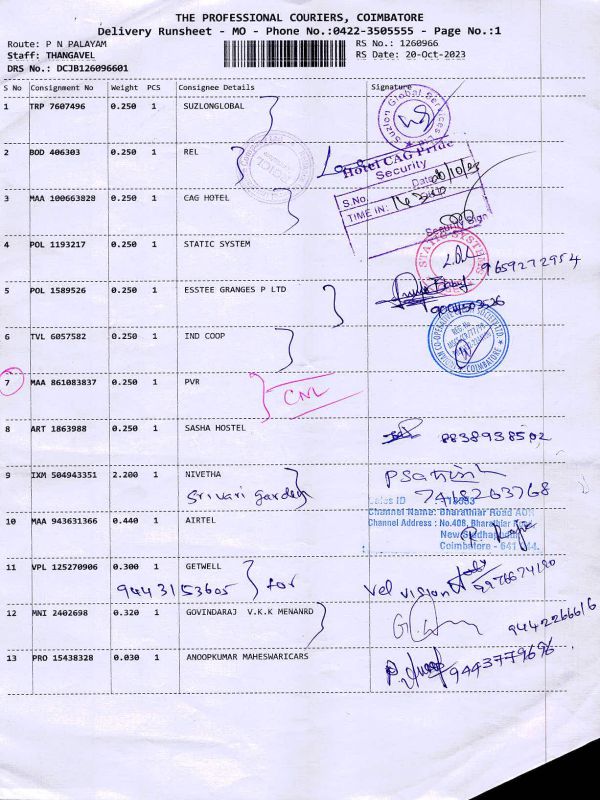 THE PROFESSIONAL COURIERS, COIMBATORE
Delivery Runsheet - MO - Phone No.:0422-3505555 - Page No.:1
Route: P N PALAYAM RS No.: 1260966
Staff: THANGAVEL RS Date: 20-Oct-2023
DRS No.: DCJB126096601
S No Consignment No Weight PCS Consignee Details Signature
1 TRP 7607496 0.250 1 SUZLONGLOBAL
Suzlon Global Services
2 BOD 406303 0.250 1 REL
Hotel CAG Pride
Security
S.No. Date 20/10/23
TIME IN:
3 MAA 100663828 0.250 1 CAG HOTEL
Security Sign
4 POL 1193217 0.250 1 STATIC SYSTEM
STATIC SYSTEMS
9659272954
5 POL 1589526 0.250 1 ESSTEE GRANGES P LTD
6 TVL 6057582 0.250 1 IND COOP
COIMBATORE
7 MAA 861083837 0.250 1 PVR
CNL
8 ART 1863988 0.250 1 SASHA HOSTEL
8838938502
9 IXM 504943351 2.200 1 NIVETHA
Srivari garden
7418263768
Sales ID
Channel Name: Bharathiar Road
10 MAA 943631366 0.440 1 AIRTEL
Channel Address : No.408, Bharathiar Road
New Siddhapudur
Coimbatore - 641 044.
11 VPL 125270906 0.300 1 GETWELL
9443153605 for Vel vision
12 MNI 2402698 0.320 1 GOVINDARAJ V.K.K MENANRD
9442266616
13 PRO 15438328 0.030 1 ANOOPKUMAR MAHESWARICARS
9443779696